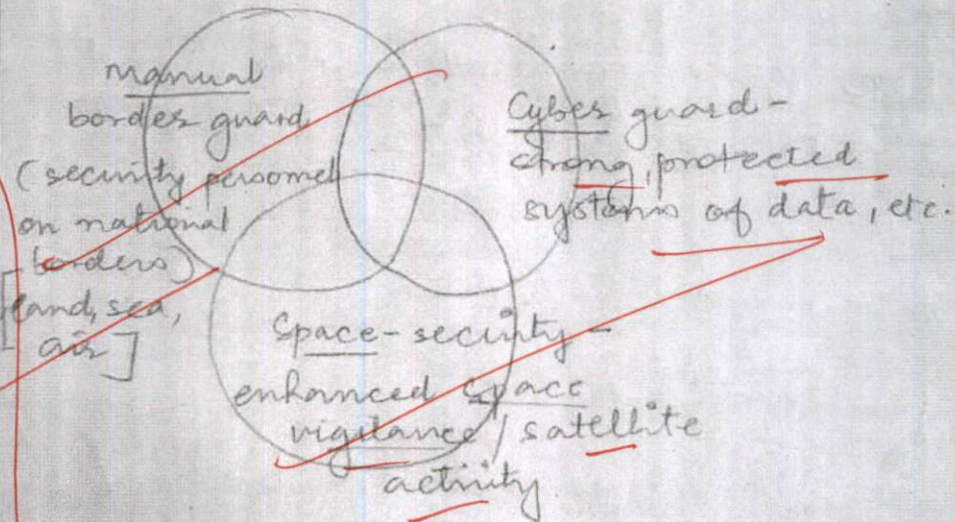 manual
border guard
(security personnel
on national
borders)
[land, sea,
air]
Cyber guard -
strong, protected
systems of data, etc.
Space-security -
enhanced space
vigilance / satellite
activity